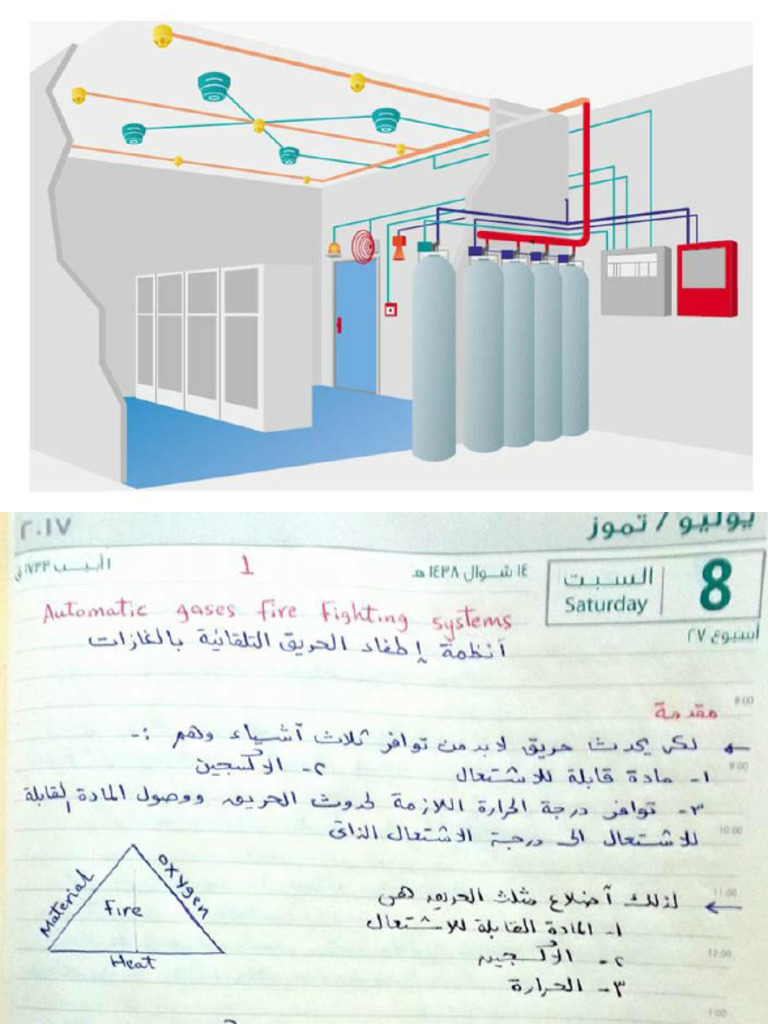 يوليو / تموز
٢٠١٧
8
السبت
Saturday
١٤ شوال ١٤٣٨ هـ
1
١ أبيب ١٧٣٣ ق
أسبوع ٢٧
Automatic gases fire fighting systems
أنظمة إطفاء الحريق التلقائية بالغازات
8:00
مقدمة
لكى يحدث حريق لابد من توافر ثلاث أشياء وهم :-
9:00
١- مادة قابلة للاشتعال ٢- الاكسجين
٣- توافر درجة الحرارة اللازمة لحدوث الحريق ووصول المادة القابلة
10:00
للاشتعال الى درجة الاشتعال الذاتى
11:00
لذلك أضلاع مثلث الحريق هى
١- المادة القابلة للاشتعال
12:00
٢- الأكسجين
٣- الحرارة
1:00
Material
oxygen
fire
Heat